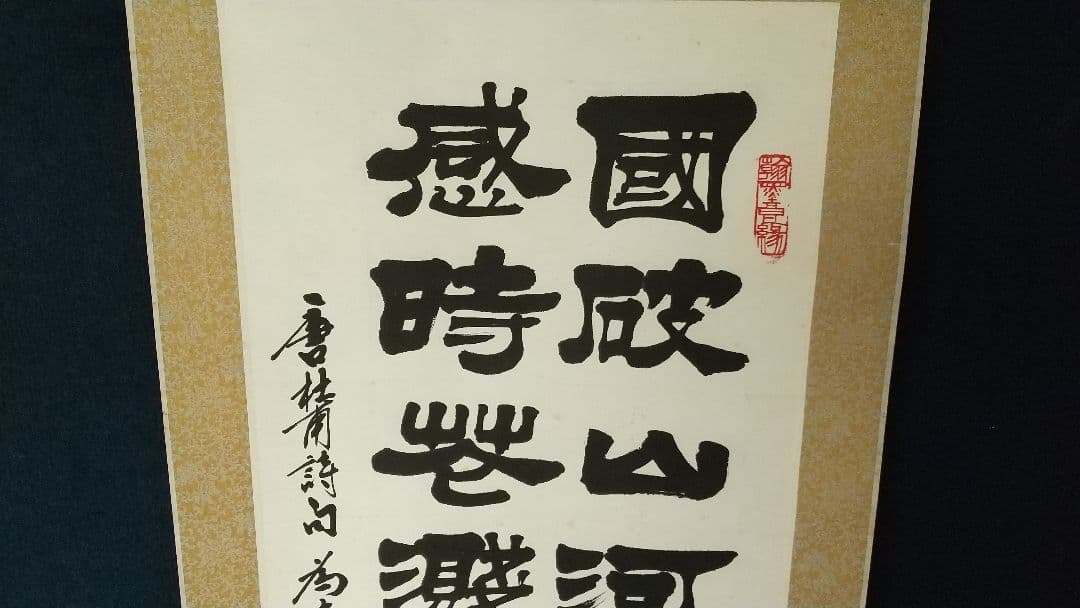 國破山河
感時花濺
唐杜甫詩句 為